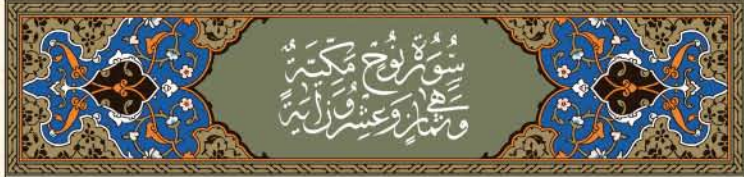 سُورَةُ نُوحٍ مَكِّيَّةٌ
وَهِيَ ثَمَانٍ وَعِشْرُونَ اٰيَةً